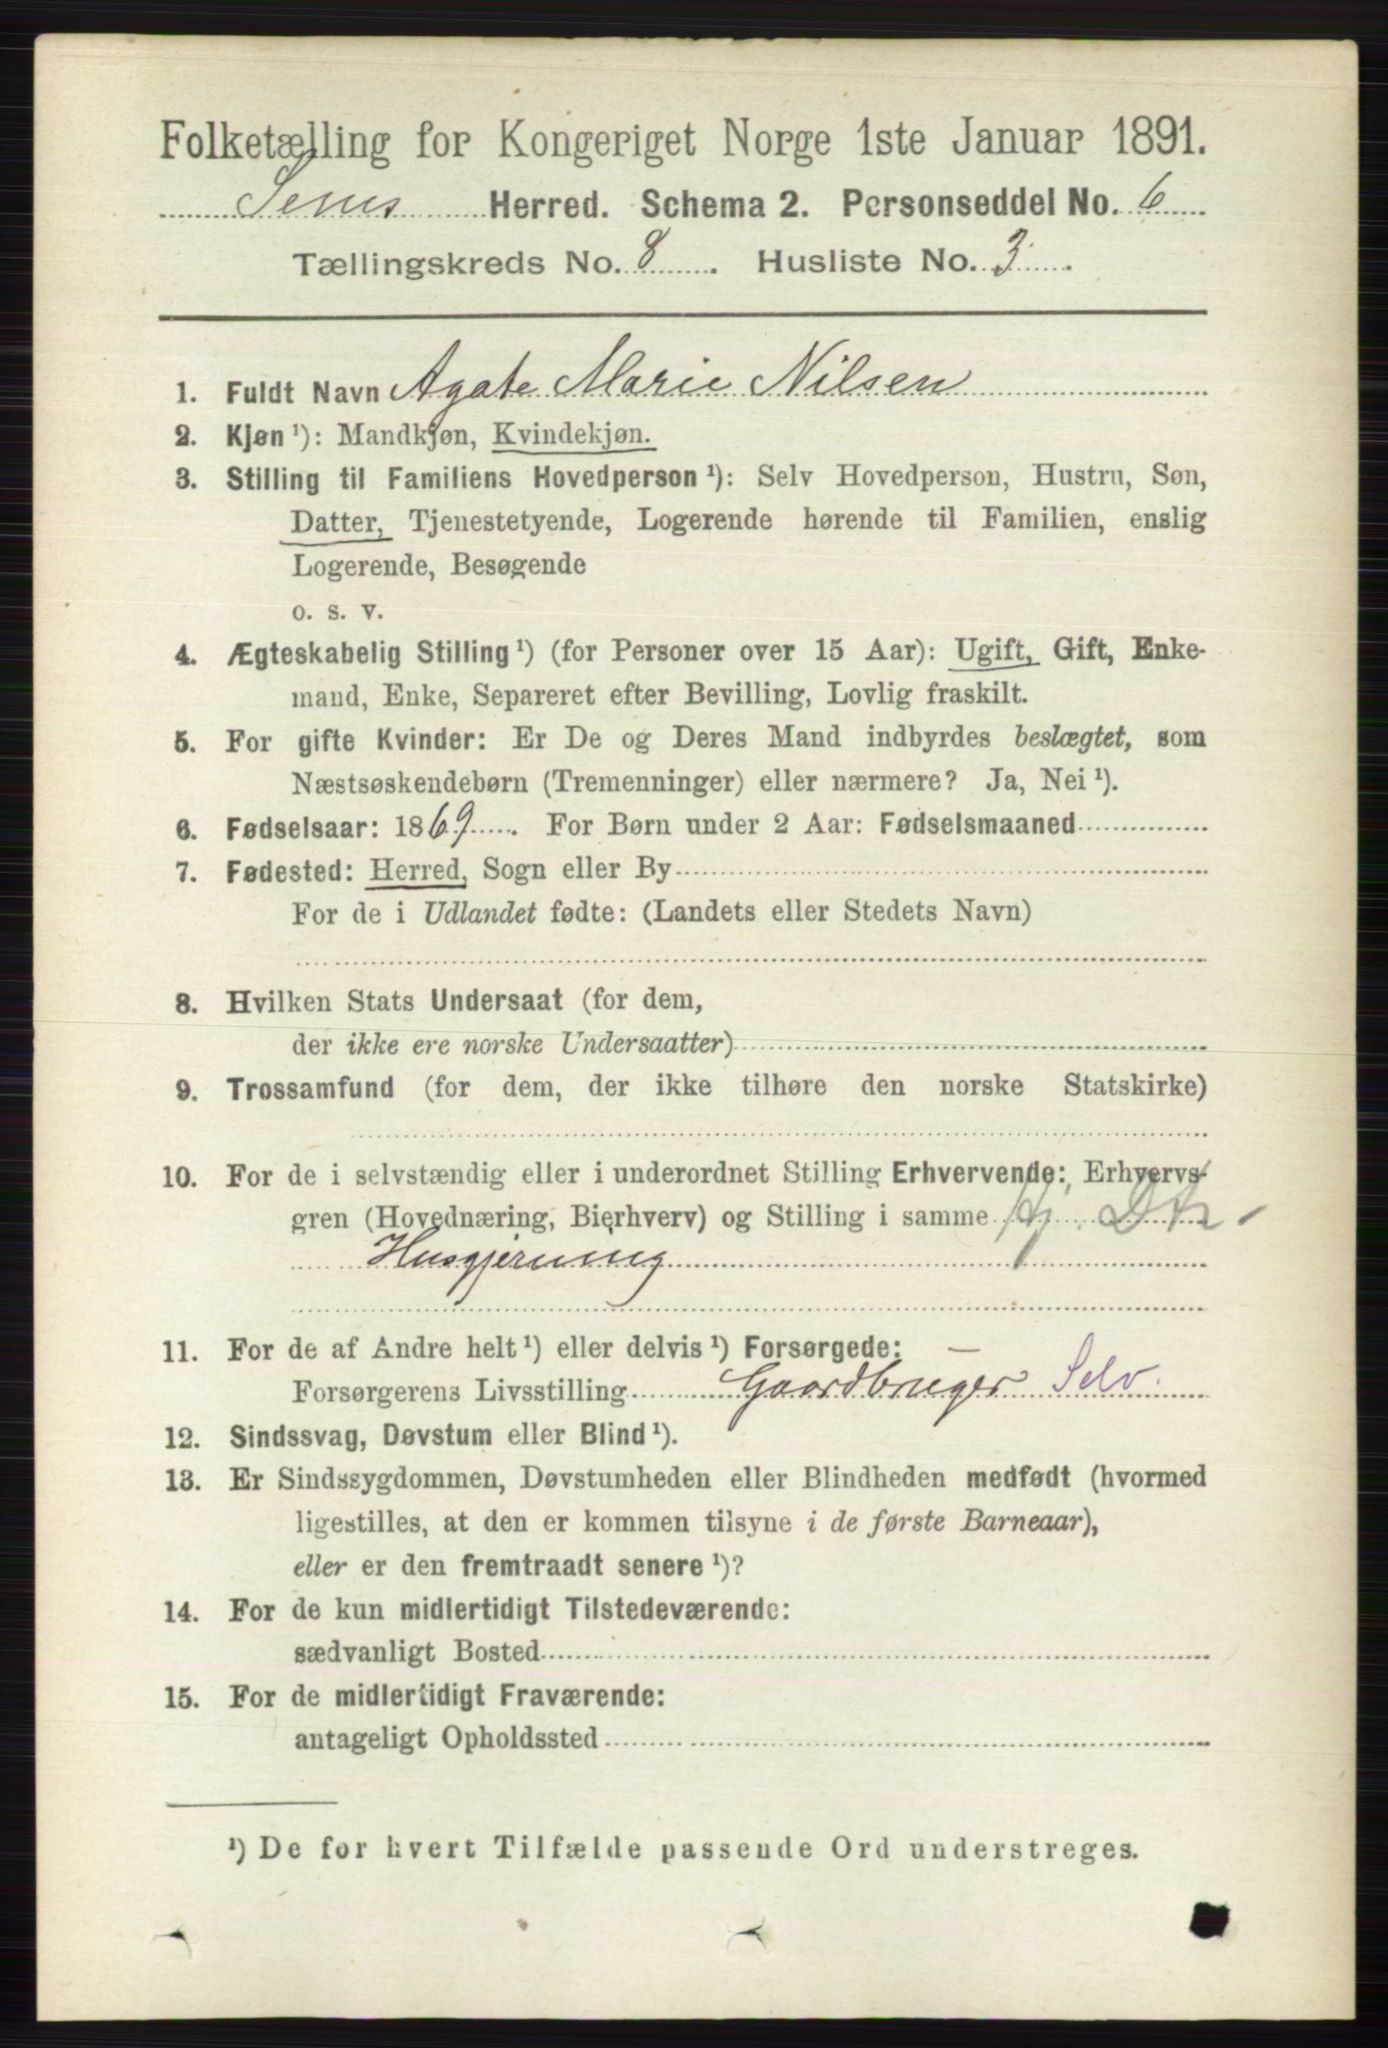 Folketælling for Kongeriget Norge 1ste Januar 1891.
Sems Herred. Schema 2. Personseddel No. 6
Tællingskreds No. 8. Husliste No. 3.
1. Fuldt Navn Agate Marie Nilsen
2. Kjøn ¹): Mandkjøn, Kvindekjøn.
3. Stilling til Familiens Hovedperson ¹): Selv Hovedperson, Hustru, Søn,
Datter, Tjenestetyende, Logerende hørende til Familien, enslig
Logerende, Besøgende
o. s. v.
4. Ægteskabelig Stilling ¹) (for Personer over 15 Aar): Ugift, Gift, Enke-
mand, Enke, Separeret efter Bevilling, Lovlig fraskilt.
5. For gifte Kvinder: Er De og Deres Mand indbyrdes beslægtet, som
Næstsøskendebørn (Tremenninger) eller nærmere? Ja, Nei ¹).
6. Fødselsaar: 1869. For Børn under 2 Aar: Fødselsmaaned
7. Fødested: Herred, Sogn eller By
For de i Udlandet fødte: (Landets eller Stedets Navn)
8. Hvilken Stats Undersaat (for dem,
der ikke ere norske Undersaatter)
9. Trossamfund (for dem, der ikke tilhøre den norske Statskirke)
10. For de i selvstændig eller i underordnet Stilling Erhvervende: Erhvervs-
gren (Hovednæring, Bierhverv) og Stilling i samme
Husgjerning
11. For de af Andre helt ¹) eller delvis ¹) Forsørgede:
Forsørgerens Livsstilling Gaardbruger Selv.
12. Sindssvag, Døvstum eller Blind ¹).
13. Er Sindssygdommen, Døvstumheden eller Blindheden medfødt (hvormed
ligestilles, at den er kommen tilsyne i de første Barneaar),
eller er den fremtraadt senere ¹)?
14. For de kun midlertidigt Tilstedeværende:
sædvanligt Bosted
15. For de midlertidigt Fraværende:
antageligt Opholdssted
¹) De for hvert Tilfælde passende Ord understreges.